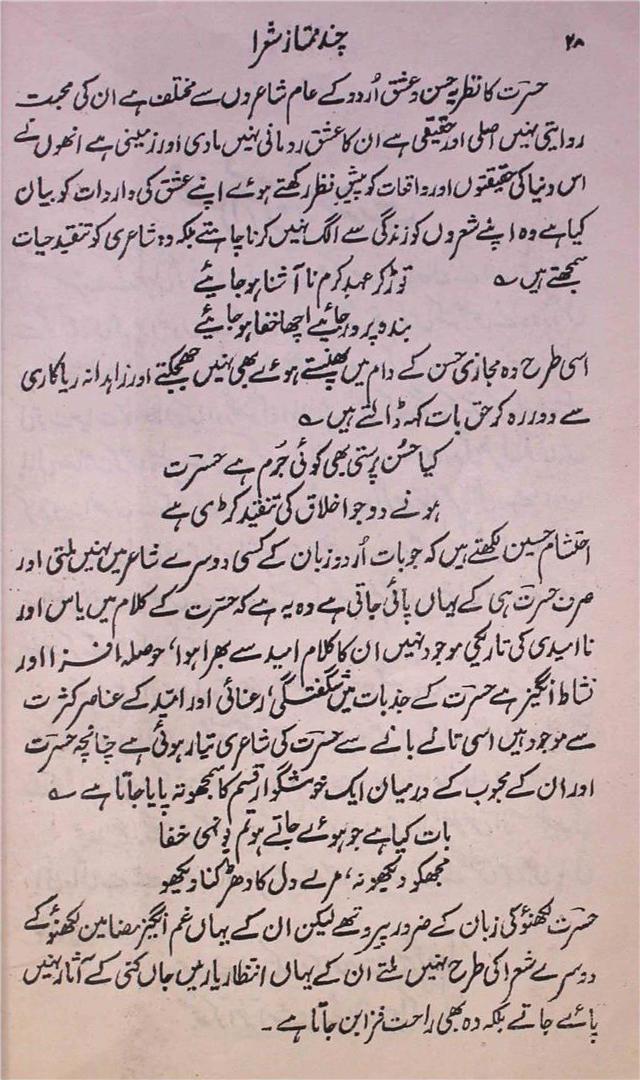 ۲۸ چند ممتاز شعرا
حسرت کا نظریہ حسن و عشق اُردو کے عام شاعروں سے مختلف ہے ان کی محبت
روایتی نہیں اصلی اور حقیقی ہے ان کا عشق رومانی نہیں مادی اور زمینی ہے انھوں نے
اس دنیا کی حقیقتوں اور واقعات کو پیشِ نظر رکھتے ہوئے اپنے عشق کی واردات کو بیان
کیا ہے وہ اپنے شعروں کو زندگی سے الگ نہیں کرنا چاہتے بلکہ وہ شاعری کو تنقید حیات
سمجھتے ہیں ؎
توڑ کر عہدِ کرم نا آشنا ہو جائیے
بندہ پرور جائیے اچھا خفا ہو جائیے
اسی طرح وہ مجازی حسن کے دام میں پھنستے ہوئے بھی نہیں جھجکتے اور زاہدانہ ریاکاری
سے دور رہ کر حق بات کہہ ڈالتے ہیں ؎
کیا حُسن پرستی بھی کوئی جُرم ہے حسرت
ہونے دو جو اخلاق کی تنقید کڑی ہے
احتشام حسین لکھتے ہیں کہ جو بات اُردو زبان کے کسی دوسرے شاعر میں نہیں ملتی اور
صرف حسرت ہی کے یہاں پائی جاتی ہے وہ یہ ہے کہ حسرت کے کلام میں یاس اور
نا امیدی کی تاریکی موجود نہیں ان کا کلام امید سے بھرا ہوا، حوصلہ افزا اور
نشاط انگیز ہے حسرت کے جذبات میں شگفتگی، رعنائی اور امّید کے عناصر کثرت
سے موجود ہیں اسی تانے بانے سے حسرت کی شاعری تیار ہوئی ہے چنانچہ حسرت
اور ان کے محبوب کے درمیان ایک خوشگوار قسم کا سمجھوتہ پایا جاتا ہے ؎
بات کیا ہے جو ہوئے جاتے ہو تم یونہی خفا
مجھکو دیکھو نہ، مرے دل کا دھڑکنا دیکھو
حسرت لکھنؤ کی زبان کے ضرور پیرو تھے لیکن ان کے یہاں غم انگیز مضامین لکھنؤ کے
دوسرے شعرا کی طرح نہیں ملتے ان کے یہاں انتظارِ یار میں جاں کنی کے آثار نہیں
پائے جاتے بلکہ وہ بھی راحت فزا بن جاتا ہے۔